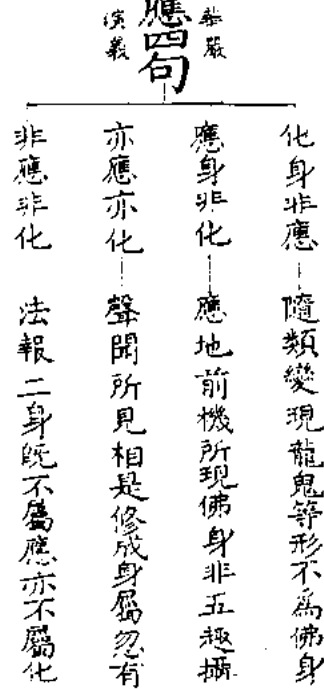 應四句
華嚴
演義
化身非應 隨類變現龍鬼等形不為佛身
應身非化 應地前機所現佛身非五趣攝
亦應亦化 聲聞所見相是修成身屬忽有
非應非化 法報二身既不屬應亦不屬化